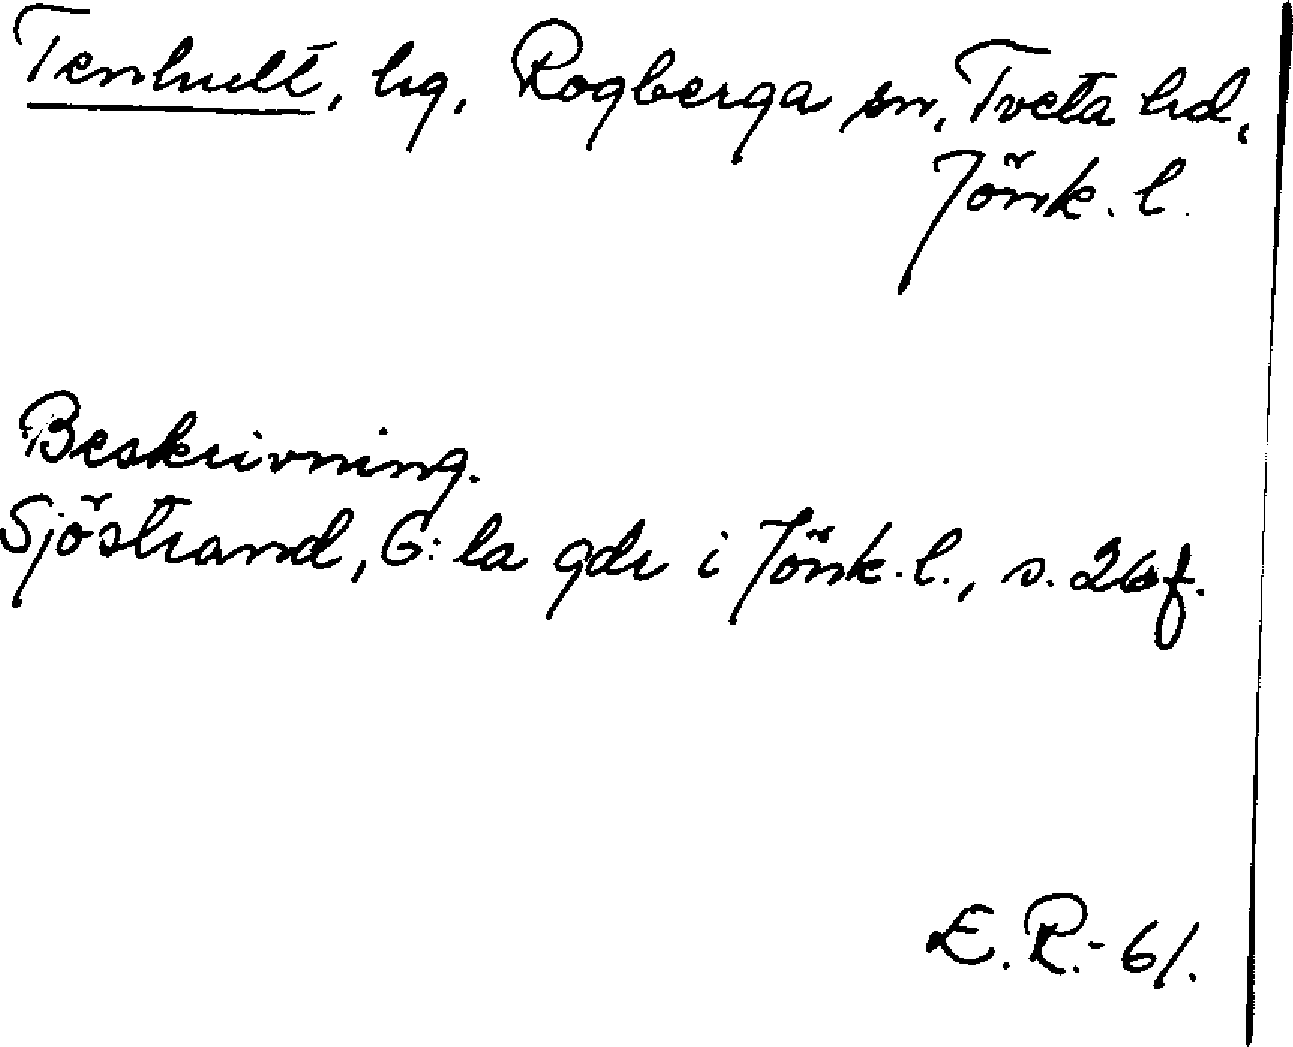 Tenhult, hg, Rogberga sn, Tveta hd,
Jönk. l.
Beskrivning.
Sjöstrand, G:la gdr i Jönk. l., s. 26f.
E.R.-61.